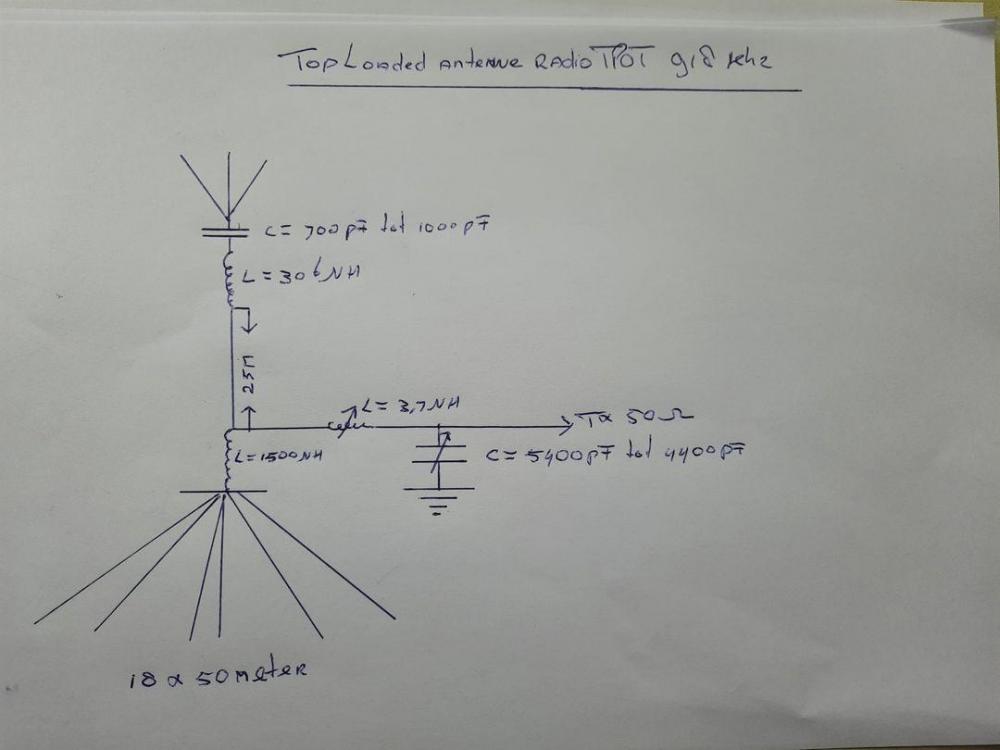 TopLoaded antenne RADIO TPOT 918 khz
C= 700 pF tot 1000 pF
L = 306 NH
25M
L= 3,7 NH
Tx 50 Ω
L=1500NH
C= 5400pF tot 4400pF
18 x 50 meter